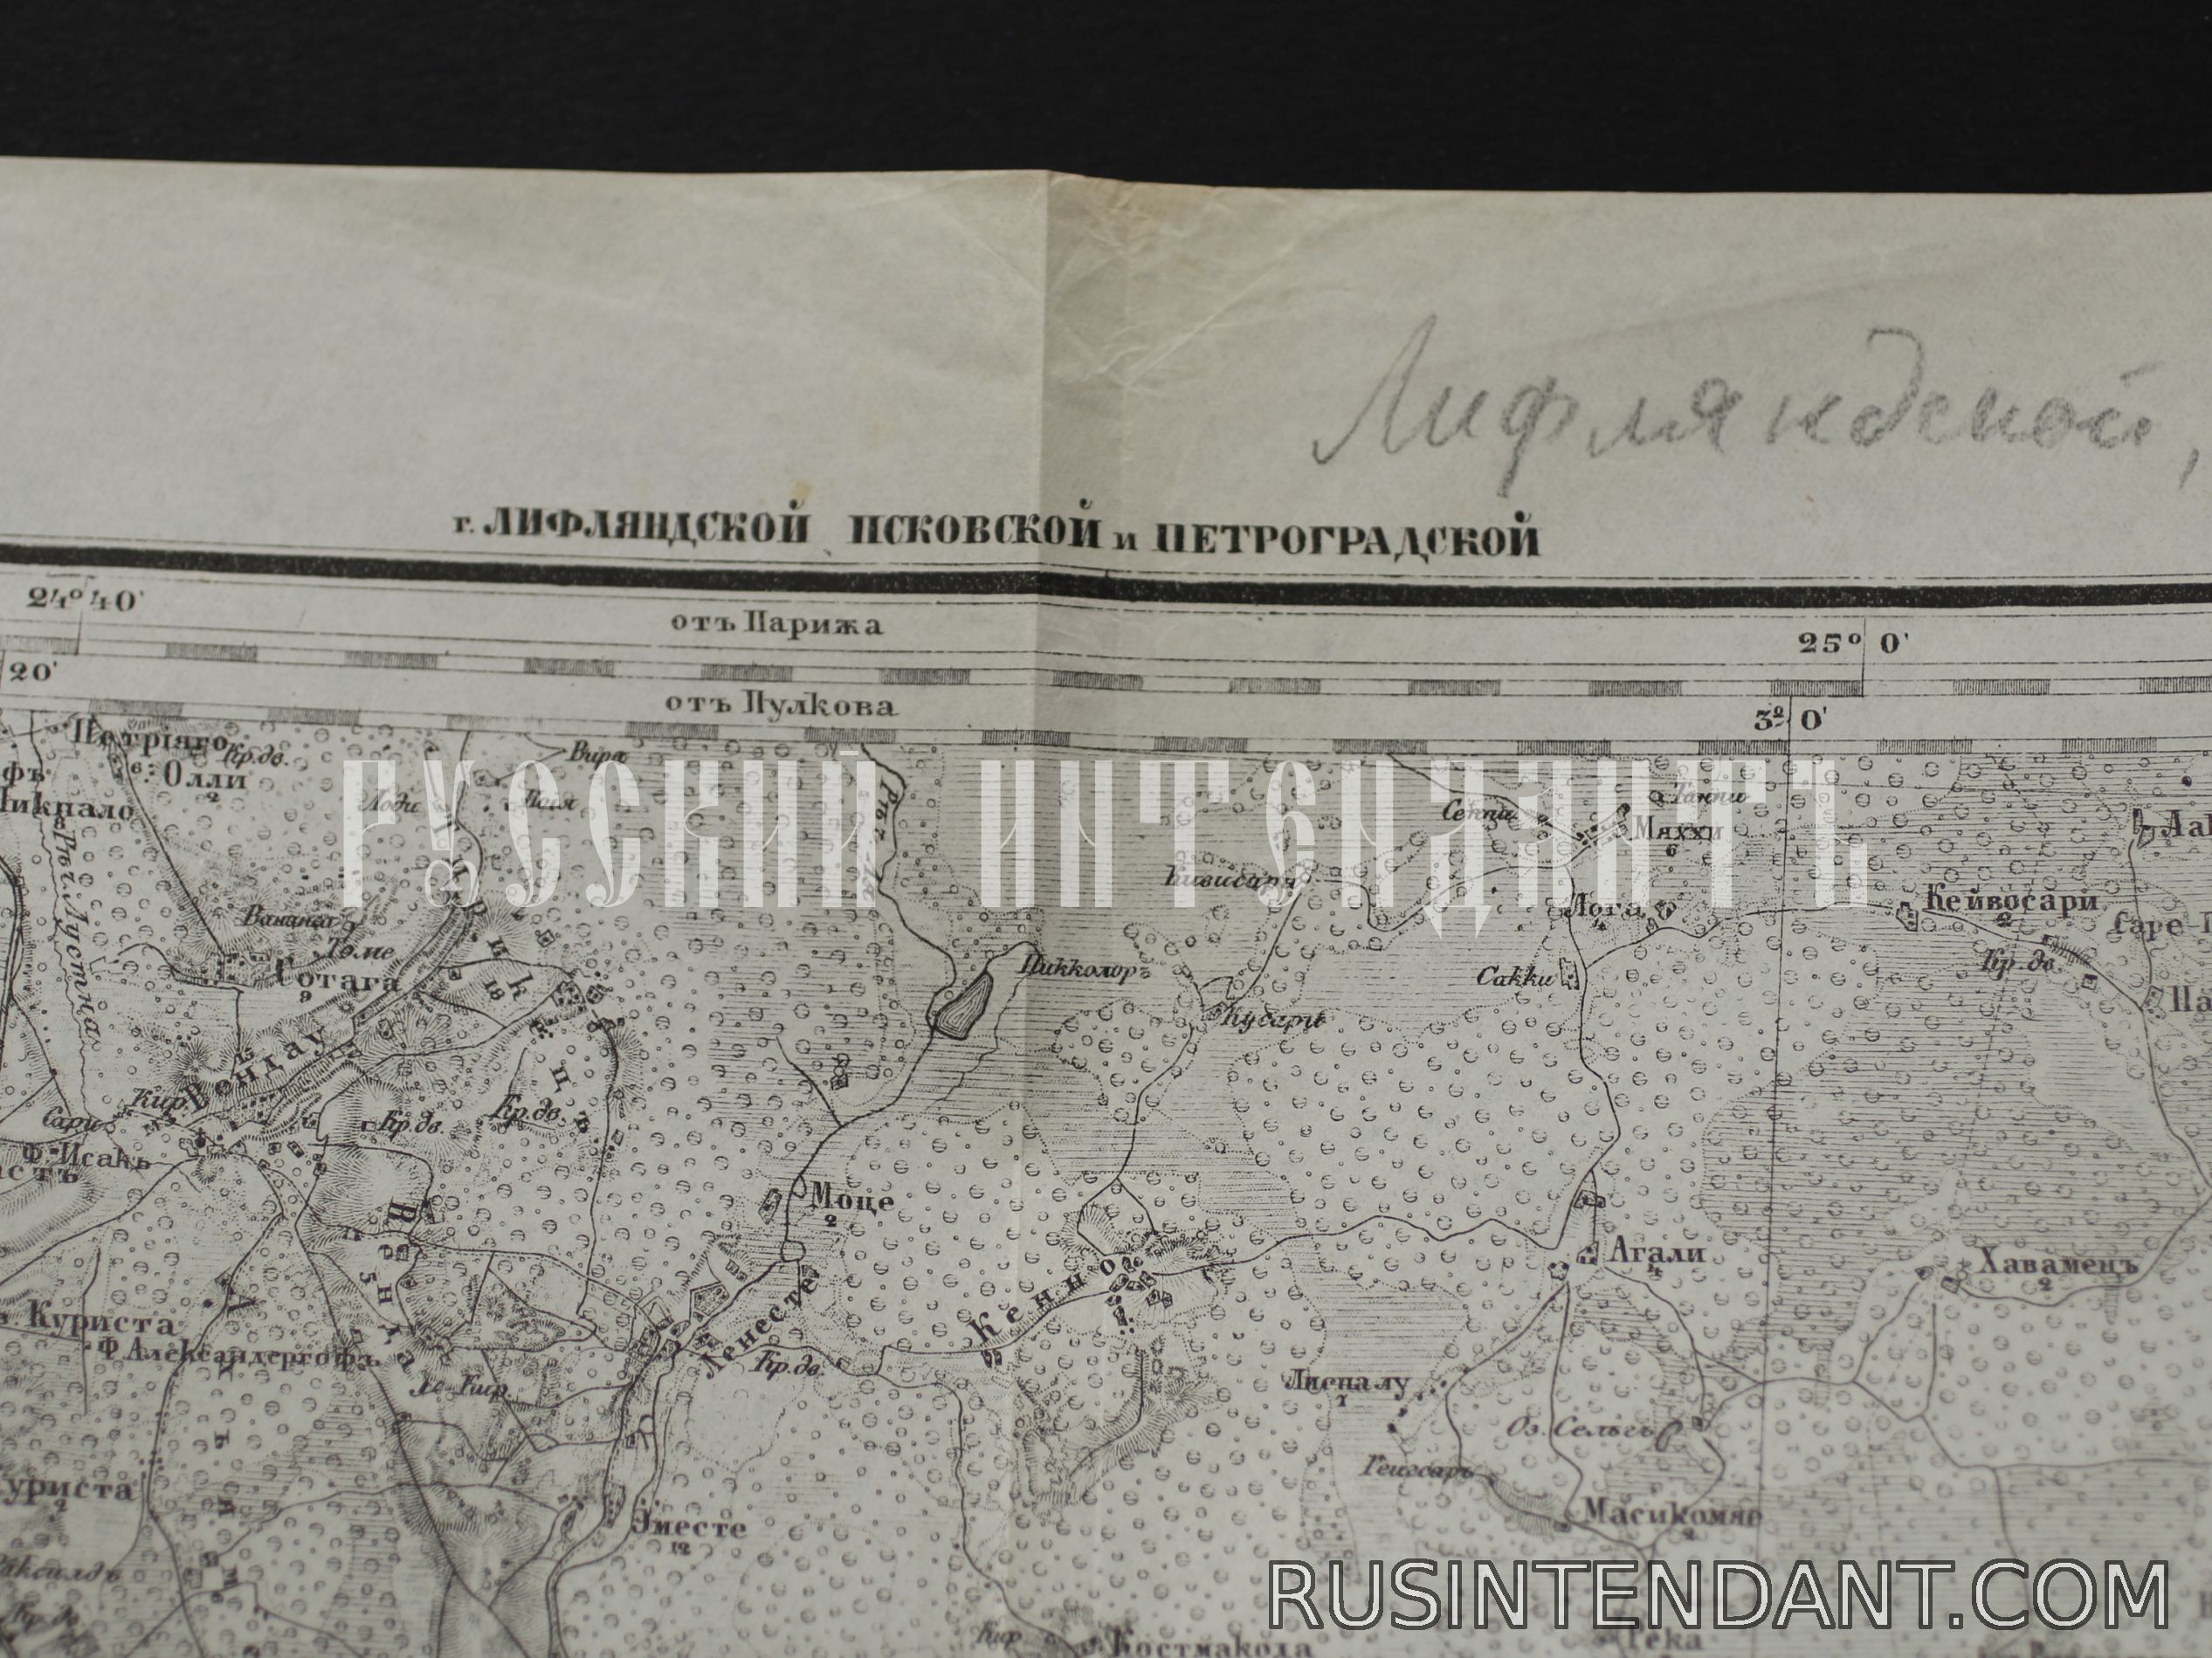 Лифляндской,
г. ЛИФЛЯНДСКОЙ ПСКОВСКОЙ и ПЕТРОГРАДСКОЙ
24° 40'
отъ Парижа
25° 0'
20'
отъ Пулкова
3° 0'
Кр.дв.
Вира
Олли
2
РУССКІЙ ИНТЕНДАНТЪ
Мяххи
6
Кивисари
Лога
Кейвосари
2
Саре
Томе
Сотага
9
18
Пикколоръ
Сакки
Кр.дв.
Па
Вендау
Кусаръ
Кир.
Сари
Кр.дв.
Кр.дв.
Ф. Исакъ
Моце
2
Агали
4
Хаваметъ
2
Кенно
Куриста
Ленесте
Ф. Александергофъ
Кр.дв.
Лиспалу
7
Оз. Сельгъ
уриста
2
Масикомяе
2
Эместе
12
Кр.дв.
Костмакода
RUSINTENDANT.COM